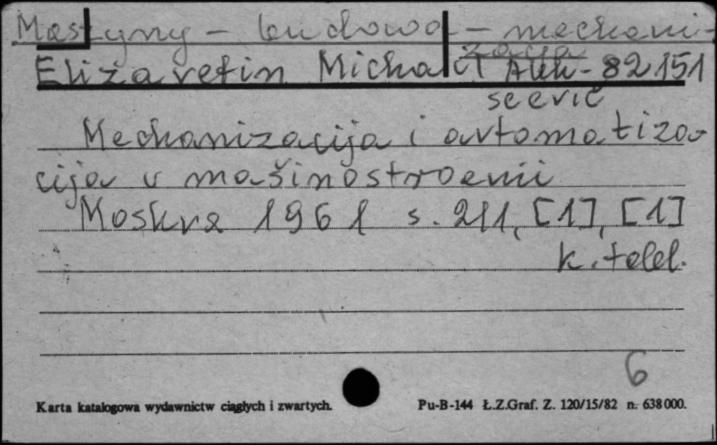 Maszyny - budowa - mechani-
zacja
Elizaretin Michail Alek- 82151
seevič
Mechanizacija i avtomatiza-
cija v mašinostroenii
Moskva 1961 s. 211, [1], [1]
k. tabl.
6
Karta katalogowa wydawnictw ciągłych i zwartych.
Pu-B-144 Ł.Z.Graf. Z. 120/15/82 n. 638 000.